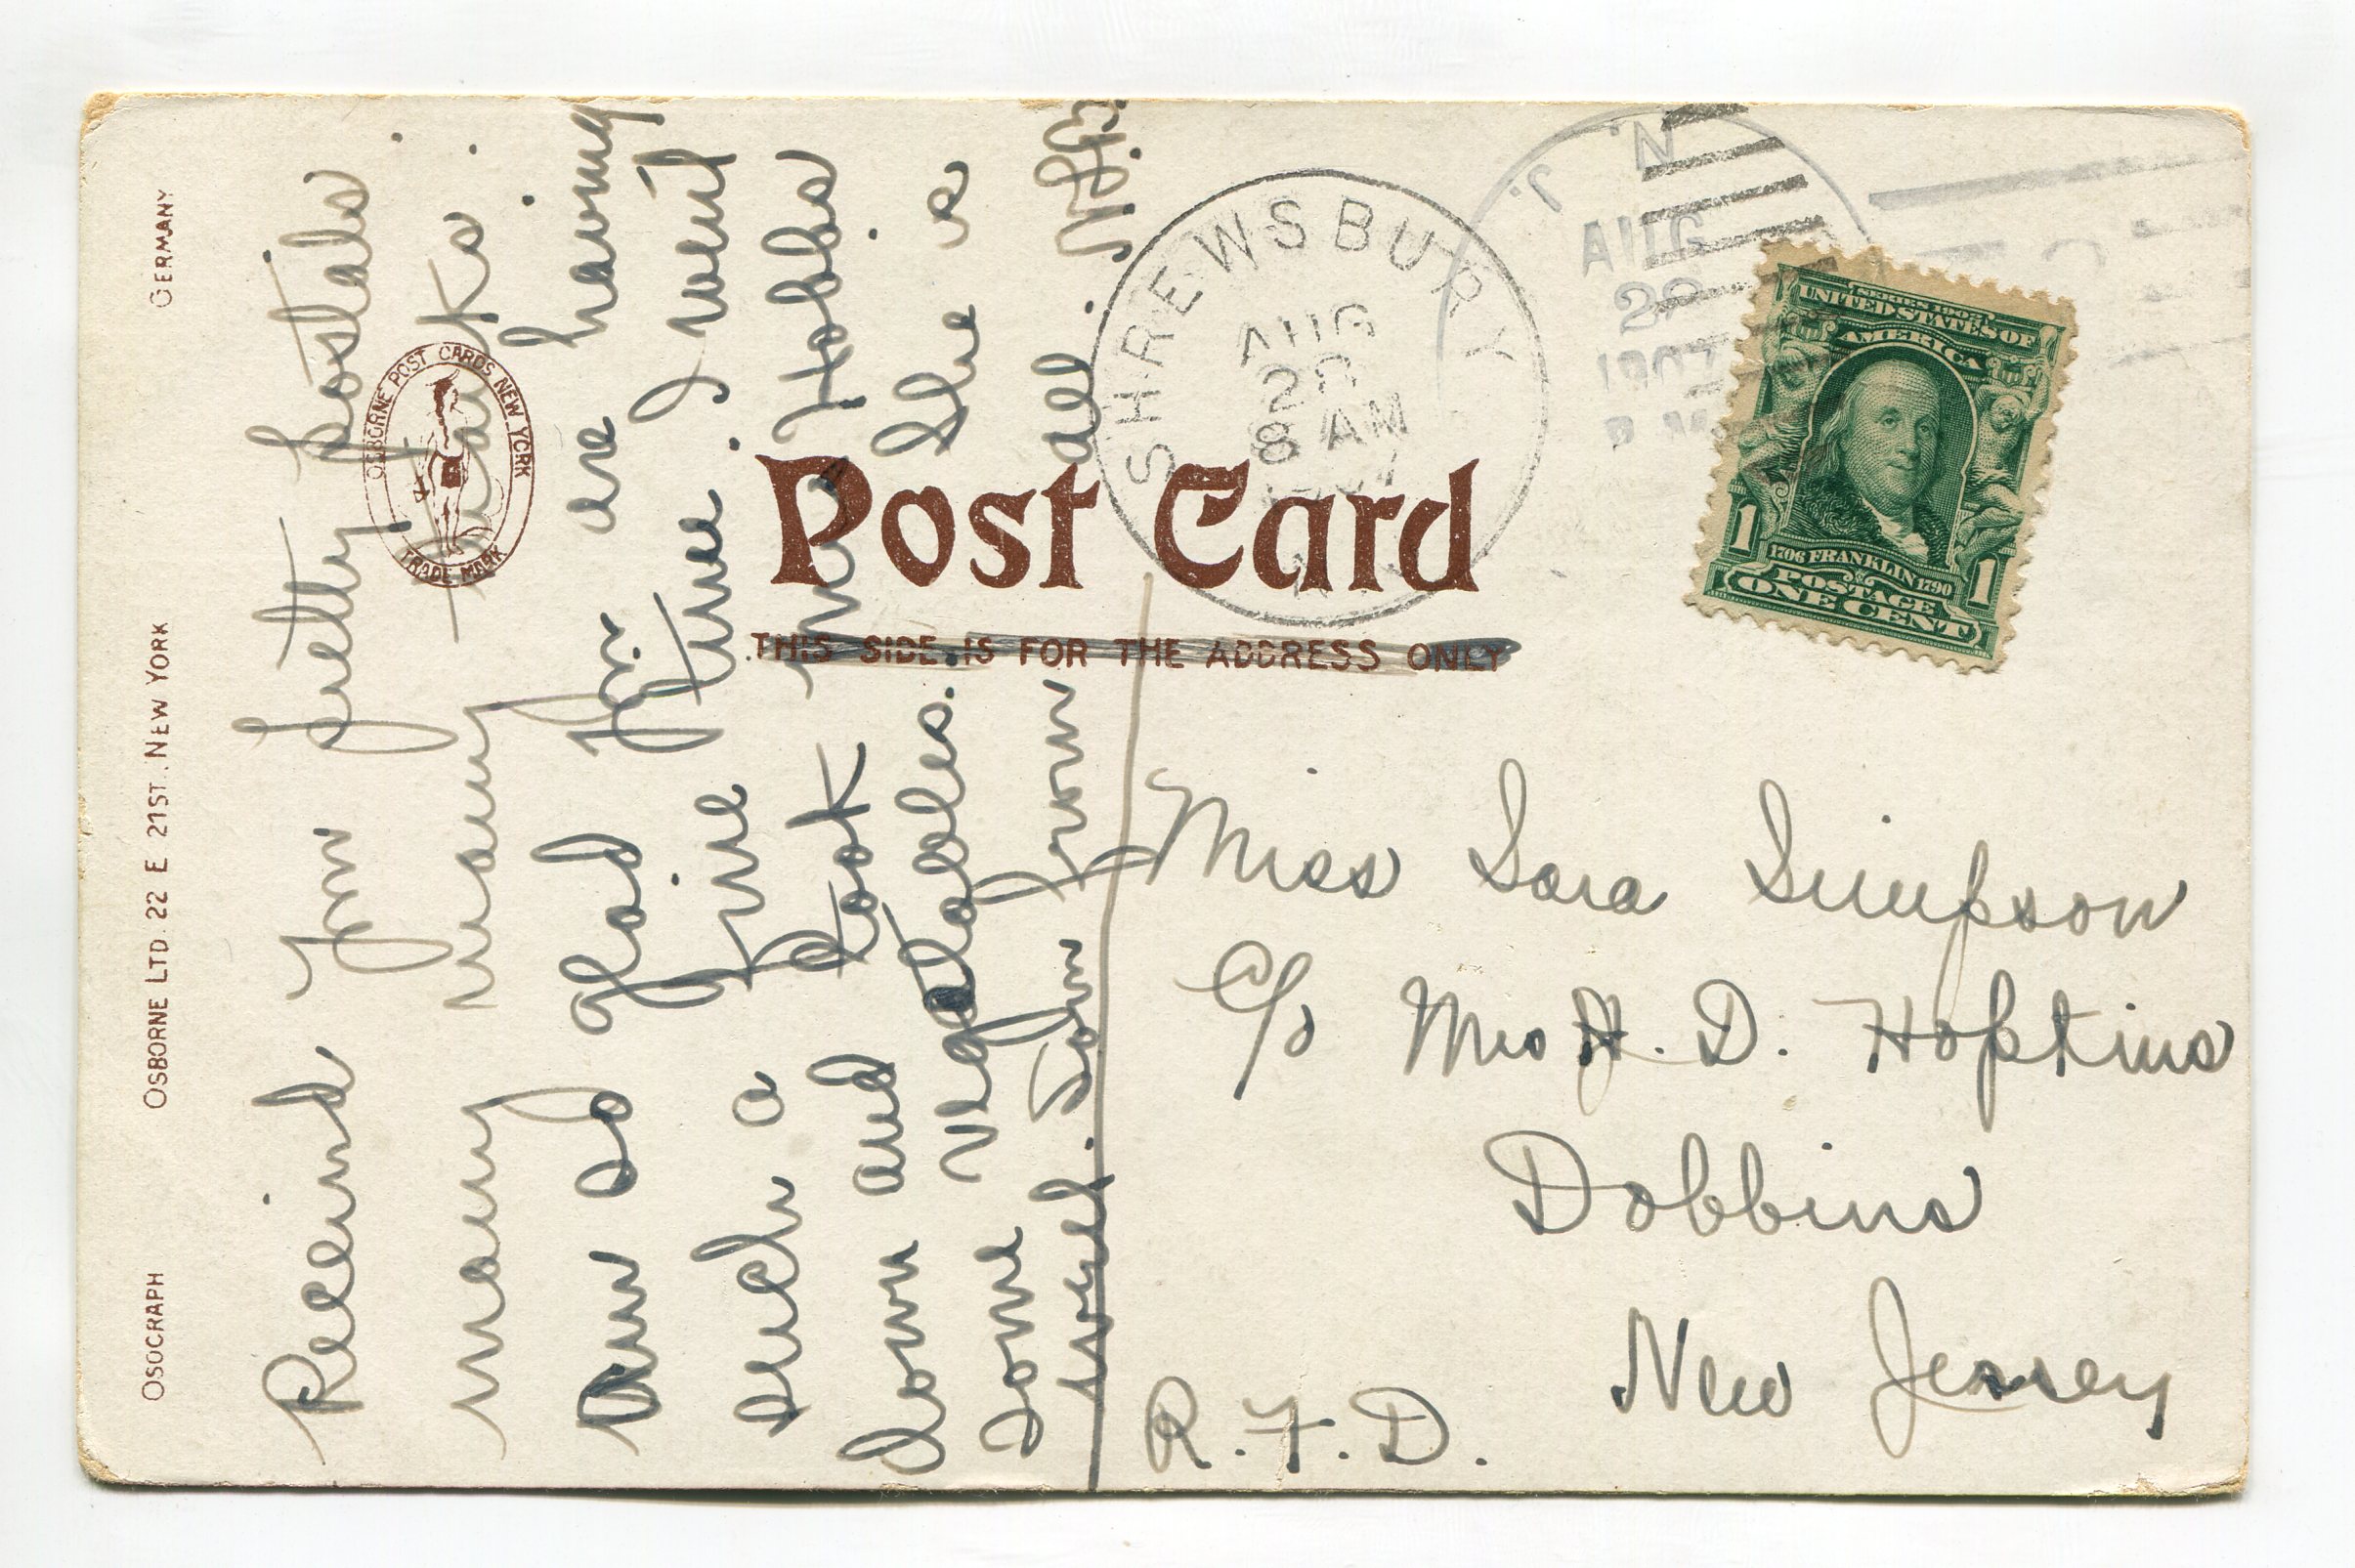 OSOGRAPH
OSBORNE LTD. 22 E 21ST. NEW YORK
GERMANY
OSBORNE POST CARDS NEW YORK
TRADE MARK
Post Card
THIS SIDE IS FOR THE ADDRESS ONLY
SHREWSBURY
AUG
8 AM
N. J.
AUG
1907
SERIES 1902
UNITED STATES OF
AMERICA
1706 FRANKLIN 1790
POSTAGE
1 ONE CENT 1
Received your pretty postals
many many thanks.
Am so glad you are having
such a fine time. I went
down and took Mrs Hobbs
some vegatables. She is
well. Love from all.
Miss Sara Simpson
c/o Mrs H. D. Hopkins
Dobbins
New Jersey
R.F.D.